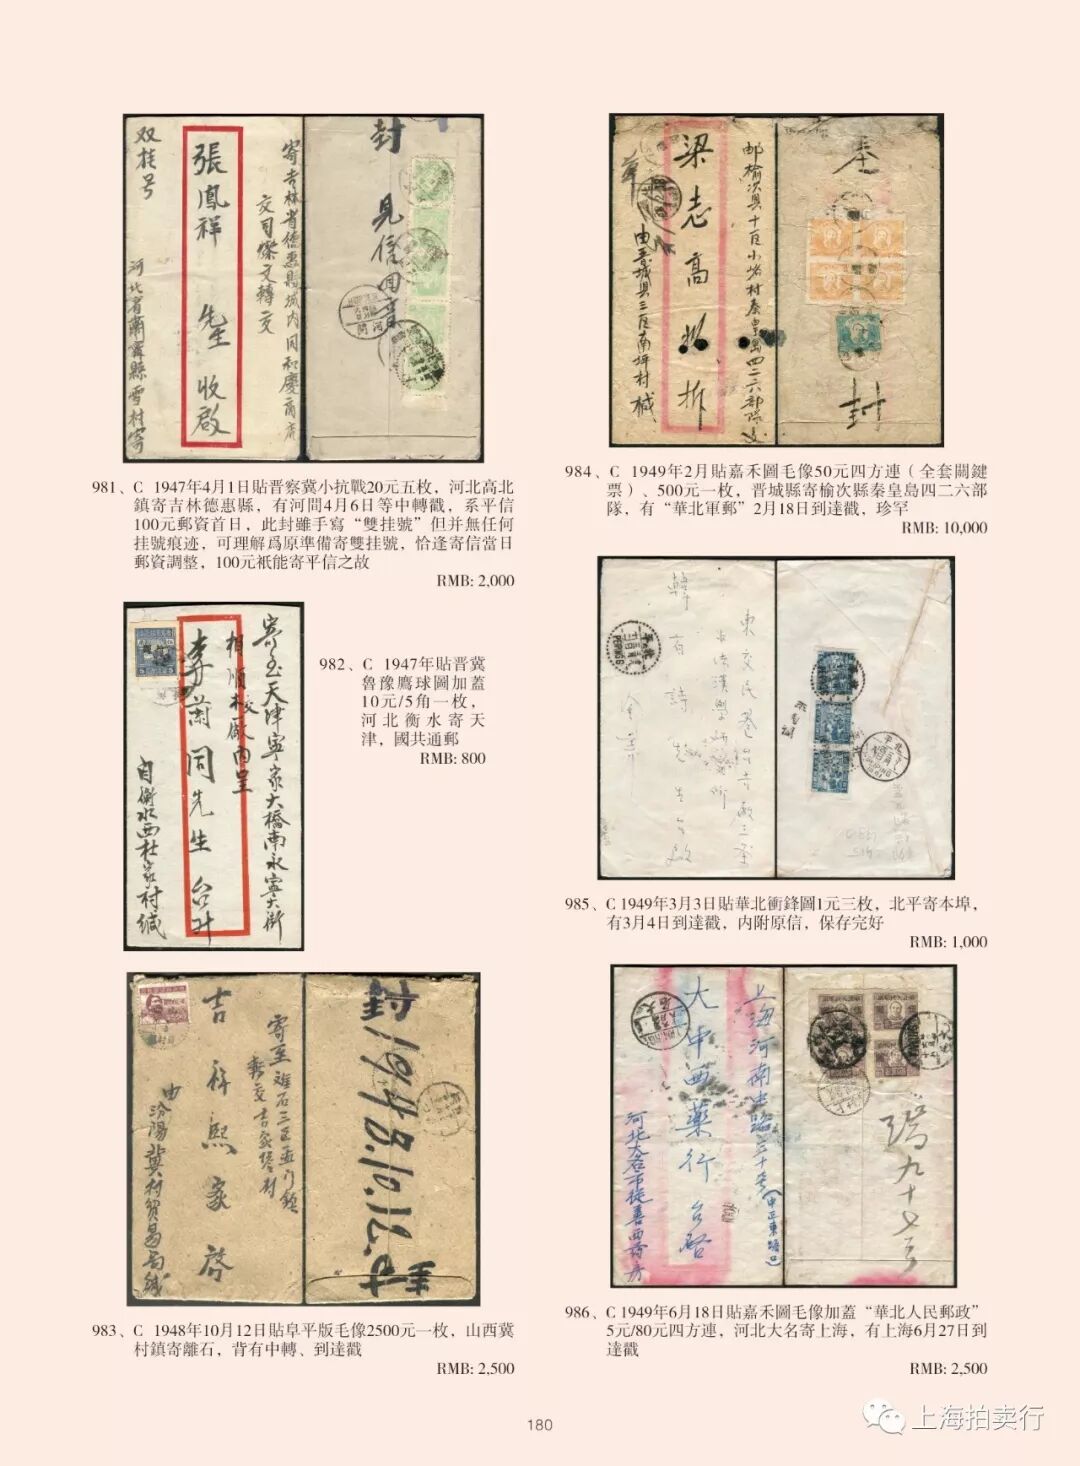 双挂号
張鳳祥 先生 收啟
寄吉林省德惠縣城内同和慶商店
交司燦文轉交
河北省肅寧縣雪村寄
封
見信回音
981、C 1947年4月1日貼晋察冀小抗戰20元五枚，河北高北
鎮寄吉林德惠縣，有河間4月6日等中轉戳，系平信
100元郵資首日，此封雖手寫“雙挂號”但并無任何
挂號痕迹，可理解爲原準備寄雙挂號，恰逢寄信當日
郵資調整，100元衹能寄平信之故
RMB: 2,000
寄至天津寧家大橋南永寧大街
相順校廠内呈
李蘭同先生 台升
自衡水西杜家村缄
982、C 1947年貼晋冀
魯豫鷹球圖加蓋
10元/5角一枚，
河北衡水寄天
津，國共通郵
RMB: 800
吉祥熙家啓
寄至離石三區孟門鎮
由汾陽冀村贸易局缄
封
1948.10.12.
封
983、C 1948年10月12日貼阜平版毛像2500元一枚，山西冀
村鎮寄離石，背有中轉、到達戳
RMB: 2,500
梁志高
拆
由晋城县三区南坪村缄
封
984、C 1949年2月貼嘉禾圖毛像50元四方連（全套關鍵
票）、500元一枚，晋城縣寄榆次縣秦皇島四二六部
隊，有“華北軍郵”2月18日到達戳，珍罕
RMB: 10,000
東交民巷台吉廠三条
韓
985、C 1949年3月3日貼華北衝鋒圖1元三枚，北平寄本埠，
有3月4日到達戳，内附原信，保存完好
RMB: 1,000
上海河南中路
大中西藥行 台啓
河北大名市從善西药房
986、C 1949年6月18日貼嘉禾圖毛像加蓋“華北人民郵政”
5元/80元四方連，河北大名寄上海，有上海6月27日到
達戳
RMB: 2,500
180
上海拍卖行